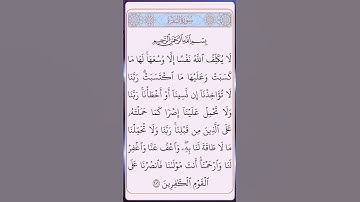 سورة البقرة
بِسْمِ اللَّهِ الرَّحْمَٰنِ الرَّحِيمِ
لَا يُكَلِّفُ اللَّهُ نَفْسًا إِلَّا وُسْعَهَا لَهَا مَا
كَسَبَتْ وَعَلَيْهَا مَا اكْتَسَبَتْ رَبَّنَا
لَا تُؤَاخِذْنَا إِن نَّسِينَا أَوْ أَخْطَأْنَا رَبَّنَا
وَلَا تَحْمِلْ عَلَيْنَا إِصْرًا كَمَا حَمَلْتَهُۥ
عَلَى الَّذِينَ مِن قَبْلِنَا رَبَّنَا وَلَا تُحَمِّلْنَا
مَا لَا طَاقَةَ لَنَا بِهِۦ وَاعْفُ عَنَّا وَاغْفِرْ
لَنَا وَارْحَمْنَا أَنتَ مَوْلَىٰنَا فَانصُرْنَا عَلَى
الْقَوْمِ الْكَٰفِرِينَ